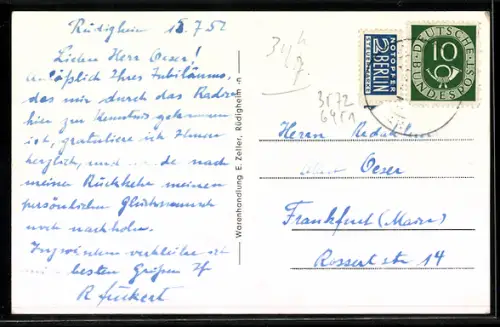 Rüdigheim 15.7.52
Lieben Herr Oeser!
anläßlich Ihres Jubiläums,
das mir durch das Radio
hier zu Kenntnis gekommen
ist, gratuliere ich Ihnen
herzlich, und de nach
meiner Rückkehr meinen
persönlichen Glückwunsch
noch nachholen.
Inzwischen verbleibe ich
mit besten Grüßen Ihr
R
Warenhandlung E. Zeller, Rüdigheim
NOTOPFER
2 BERLIN
STEUERMARKE
DEUTSCHE BUNDESPOST
10
3572
6451
Herrn Redakteur
Oeser
Frankfurt (Main)
Rossertstr 14